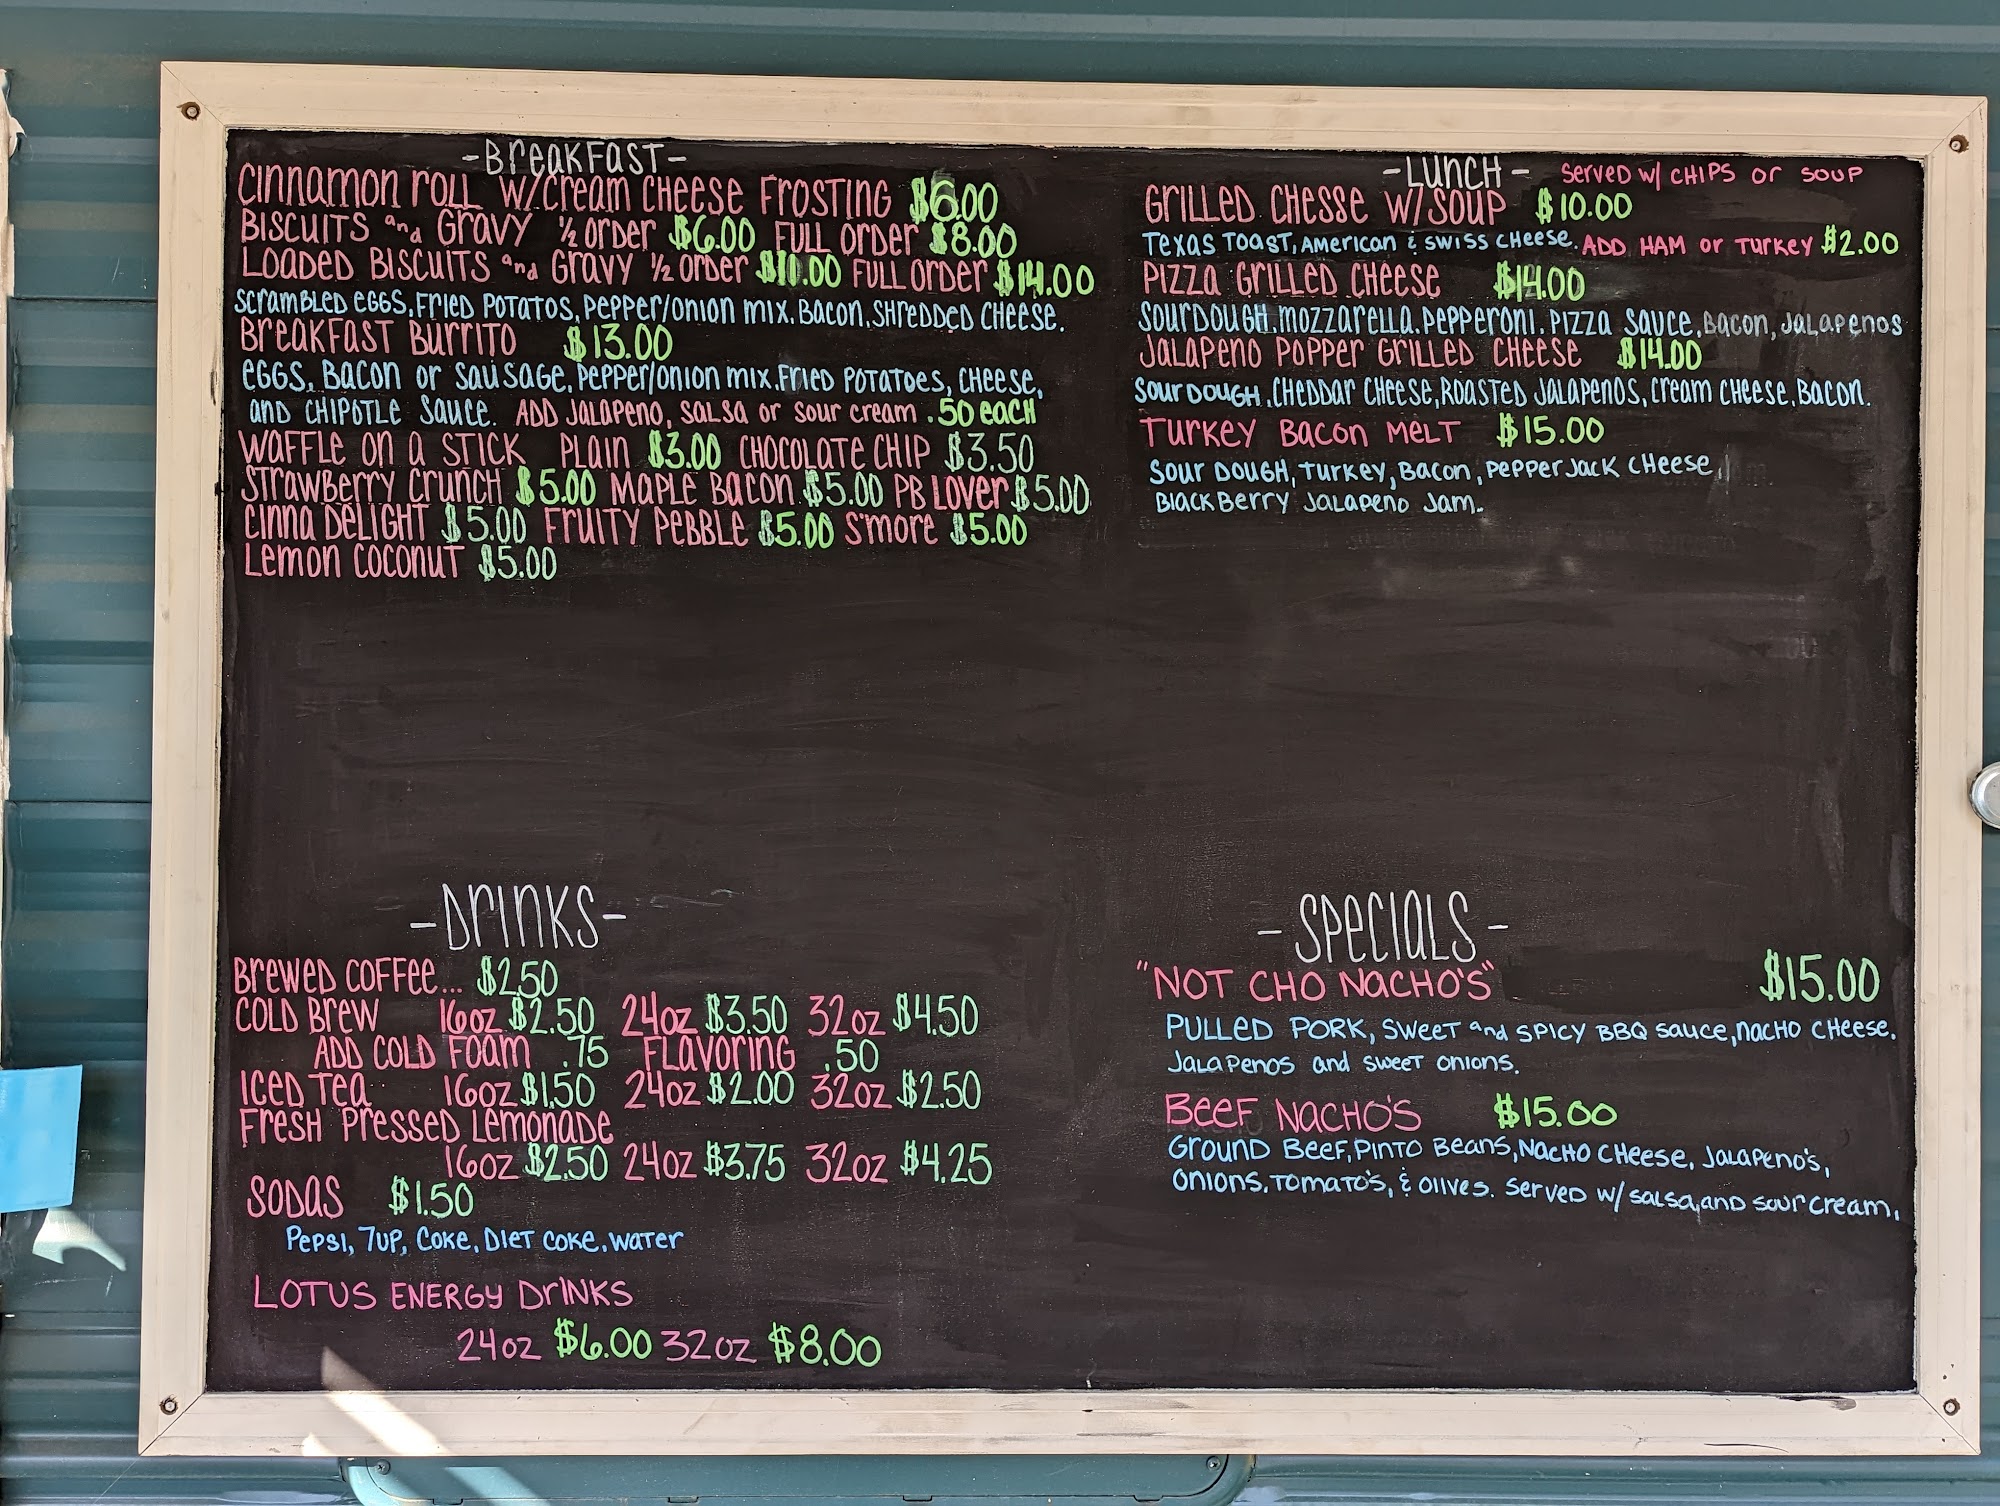 -Breakfast-
Cinnamon Roll w/cream cheese Frosting $6.00
Biscuits and Gravy 1/2 order $6.00 Full order $8.00
Loaded Biscuits and Gravy 1/2 order $11.00 Full order $14.00
Scrambled eggs, Fried Potatos, Pepper/onion mix, Bacon, Shredded Cheese.
Breakfast Burrito $13.00
eggs, Bacon or sausage, pepper/onion mix, Fried Potatoes, cheese,
and chipotle sauce. Add Jalapeno, salsa or sour cream .50 each
Waffle on a stick Plain $3.00 Chocolate chip $3.50
Strawberry crunch $5.00 Maple Bacon $5.00 PB Lover $5.00
Cinna Delight $5.00 Fruity Pebble $5.00 S'more $5.00
Lemon coconut $5.00
-Lunch- Served w/ chips or soup
Grilled Chesse w/soup $10.00
Texas Toast, American & swiss cheese. Add Ham or Turkey $2.00
Pizza Grilled Cheese $14.00
Sourdough, mozzarella, pepperoni, pizza sauce, Bacon, Jalapenos
Jalapeno Popper Grilled Cheese $14.00
Sour Dough, Cheddar Cheese, Roasted Jalapenos, cream cheese, Bacon.
Turkey Bacon Melt $15.00
Sour Dough, Turkey, Bacon, Pepper Jack Cheese,
Blackberry Jalapeno Jam.
-Drinks-
Brewed coffee... $2.50
Cold Brew 16oz $2.50 24oz $3.50 32oz $4.50
Add cold foam .75 Flavoring .50
Iced Tea 16oz $1.50 24oz $2.00 32oz $2.50
Fresh Pressed Lemonade
16oz $2.50 24oz $3.75 32oz $4.25
Sodas $1.50
Pepsi, 7up, Coke, Diet coke, water
Lotus Energy Drinks
24oz $6.00 32oz $8.00
-Specials-
"Not Cho Nacho's" $15.00
Pulled Pork, sweet and spicy BBQ sauce, nacho cheese,
Jalapenos and sweet onions.
Beef Nacho's $15.00
Ground Beef, Pinto Beans, Nacho cheese, Jalapeno's,
onions, Tomato's, & olives. Served w/ salsa, and sour cream.